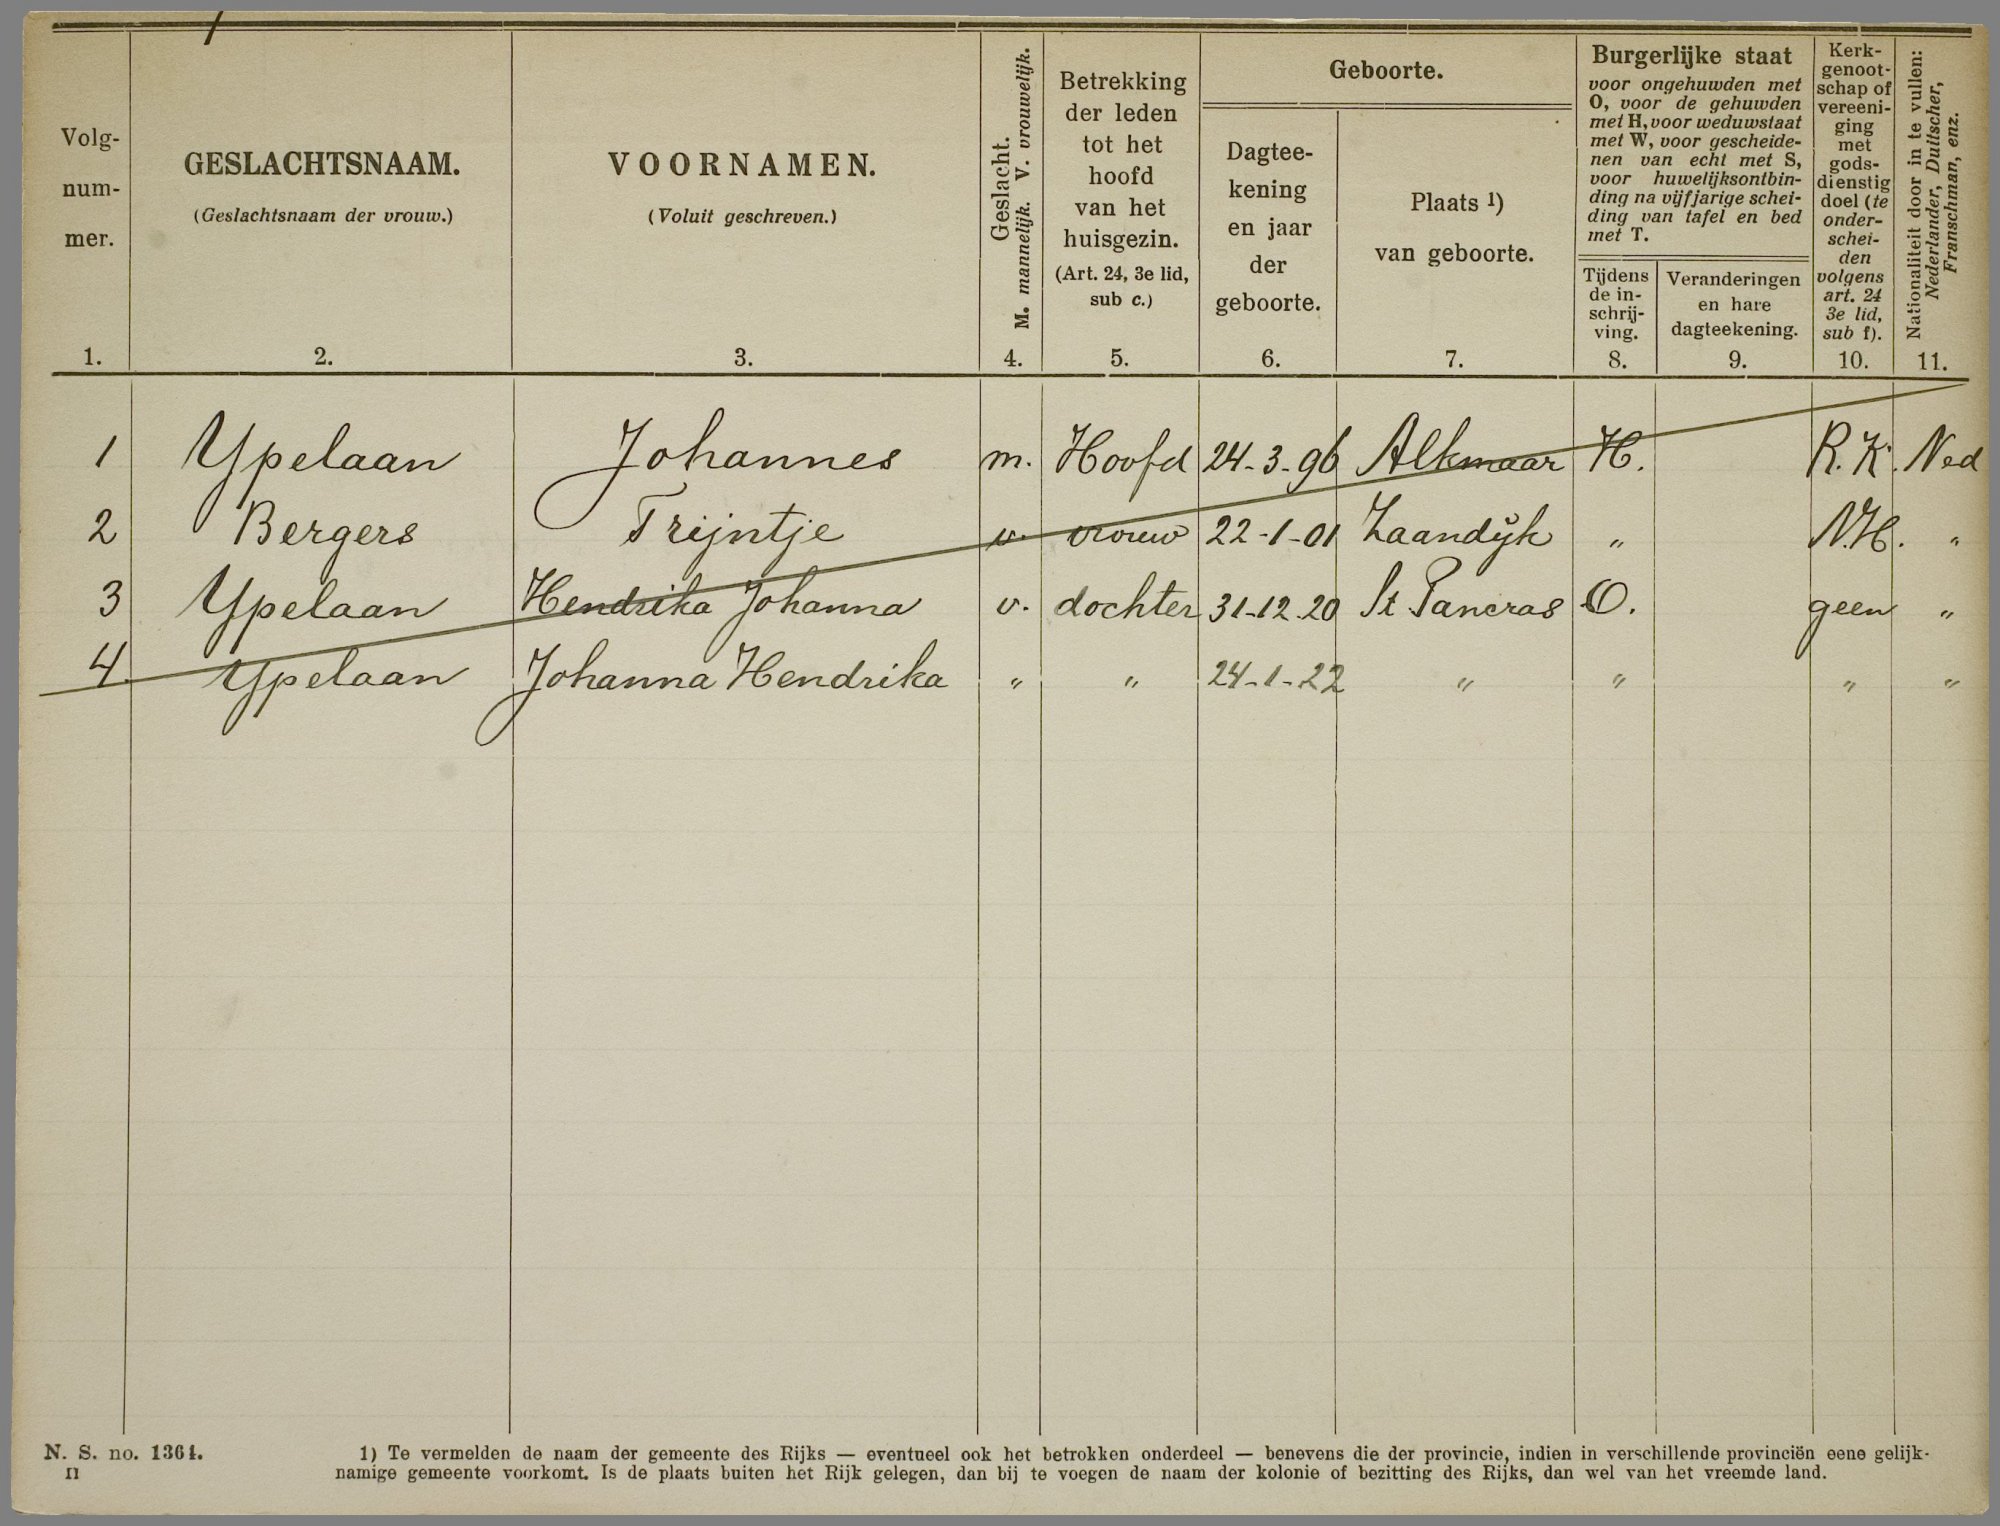 Volg-
num-
mer.
1.
GESLACHTSNAAM.
(Geslachtsnaam der vrouw.)
2.
VOORNAMEN.
(Voluit geschreven.)
3.
Geslacht.
M. mannelijk. V. vrouwelijk.
4.
Betrekking
der leden
tot het
hoofd
van het
huisgezin.
(Art. 24, 3e lid,
sub c.)
5.
Geboorte.
Dagtee-
kening
en jaar
der
geboorte.
6.
Plaats 1)
van geboorte.
7.
Burgerlijke staat
voor ongehuwden met
O, voor de gehuwden
met H, voor weduwstaat
met W, voor gescheide-
nen van echt met S,
voor huwelijksontbin-
ding na vijfjarige schei-
ding van tafel en bed
met T.
Tijdens
de in-
schrij-
ving.
8.
Veranderingen
en hare
dagteekening.
9.
Kerk-
genoot-
schap of
vereeni-
ging
met
gods-
dienstig
doel (te
onder-
schei-
den
volgens
art. 24
3e lid,
sub f).
10.
Nationaliteit door in te vullen:
Nederlander, Duitscher,
Franschman, enz.
11.
1 Ypelaan Johannes m. Hoofd 24-3-96 Alkmaar H. R.K. Ned
2 Bergers Trijntje v. vrouw 22-1-01 Zaandijk " N.H. "
3 Ypelaan Hendrika Johanna v. dochter 31-12-20 St Pancras O. geen "
4. Ypelaan Johanna Hendrika " " 24-1-22 " " " "
N. S. no. 1364.
II
1) Te vermelden de naam der gemeente des Rijks — eventueel ook het betrokken onderdeel — benevens die der provincie, indien in verschillende provinciën eene gelijk-
namige gemeente voorkomt. Is de plaats buiten het Rijk gelegen, dan bij te voegen de naam der kolonie of bezitting des Rijks, dan wel van het vreemde land.